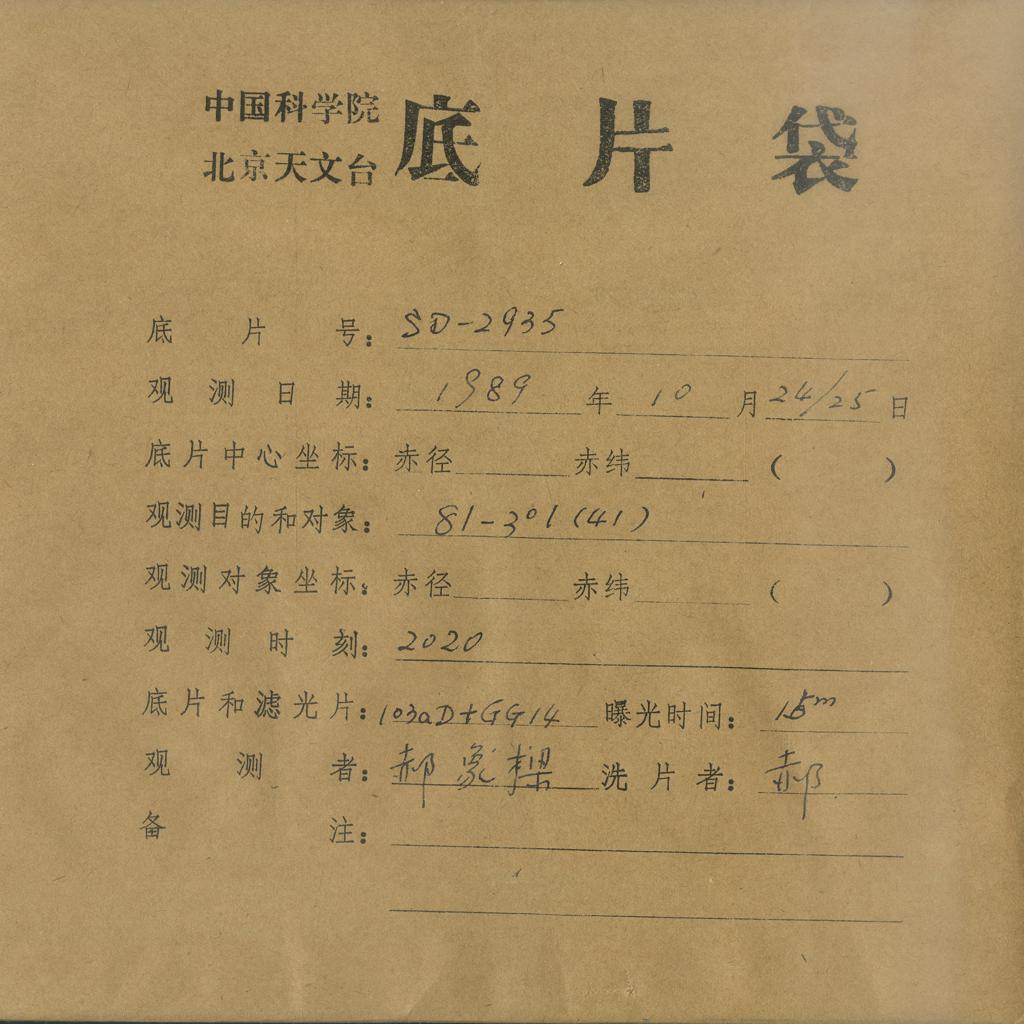 中国科学院
北京天文台
底片袋
底片号：SD-2935
观测日期：1989年10月24/25日
底片中心坐标：赤径 赤纬 （ ）
观测目的和对象：81-301(41)
观测对象坐标：赤径 赤纬 （ ）
观测时刻：2020
底片和滤光片：103aD+GG14 曝光时间：15m
观测者：郝象樑 洗片者：郝
备注：